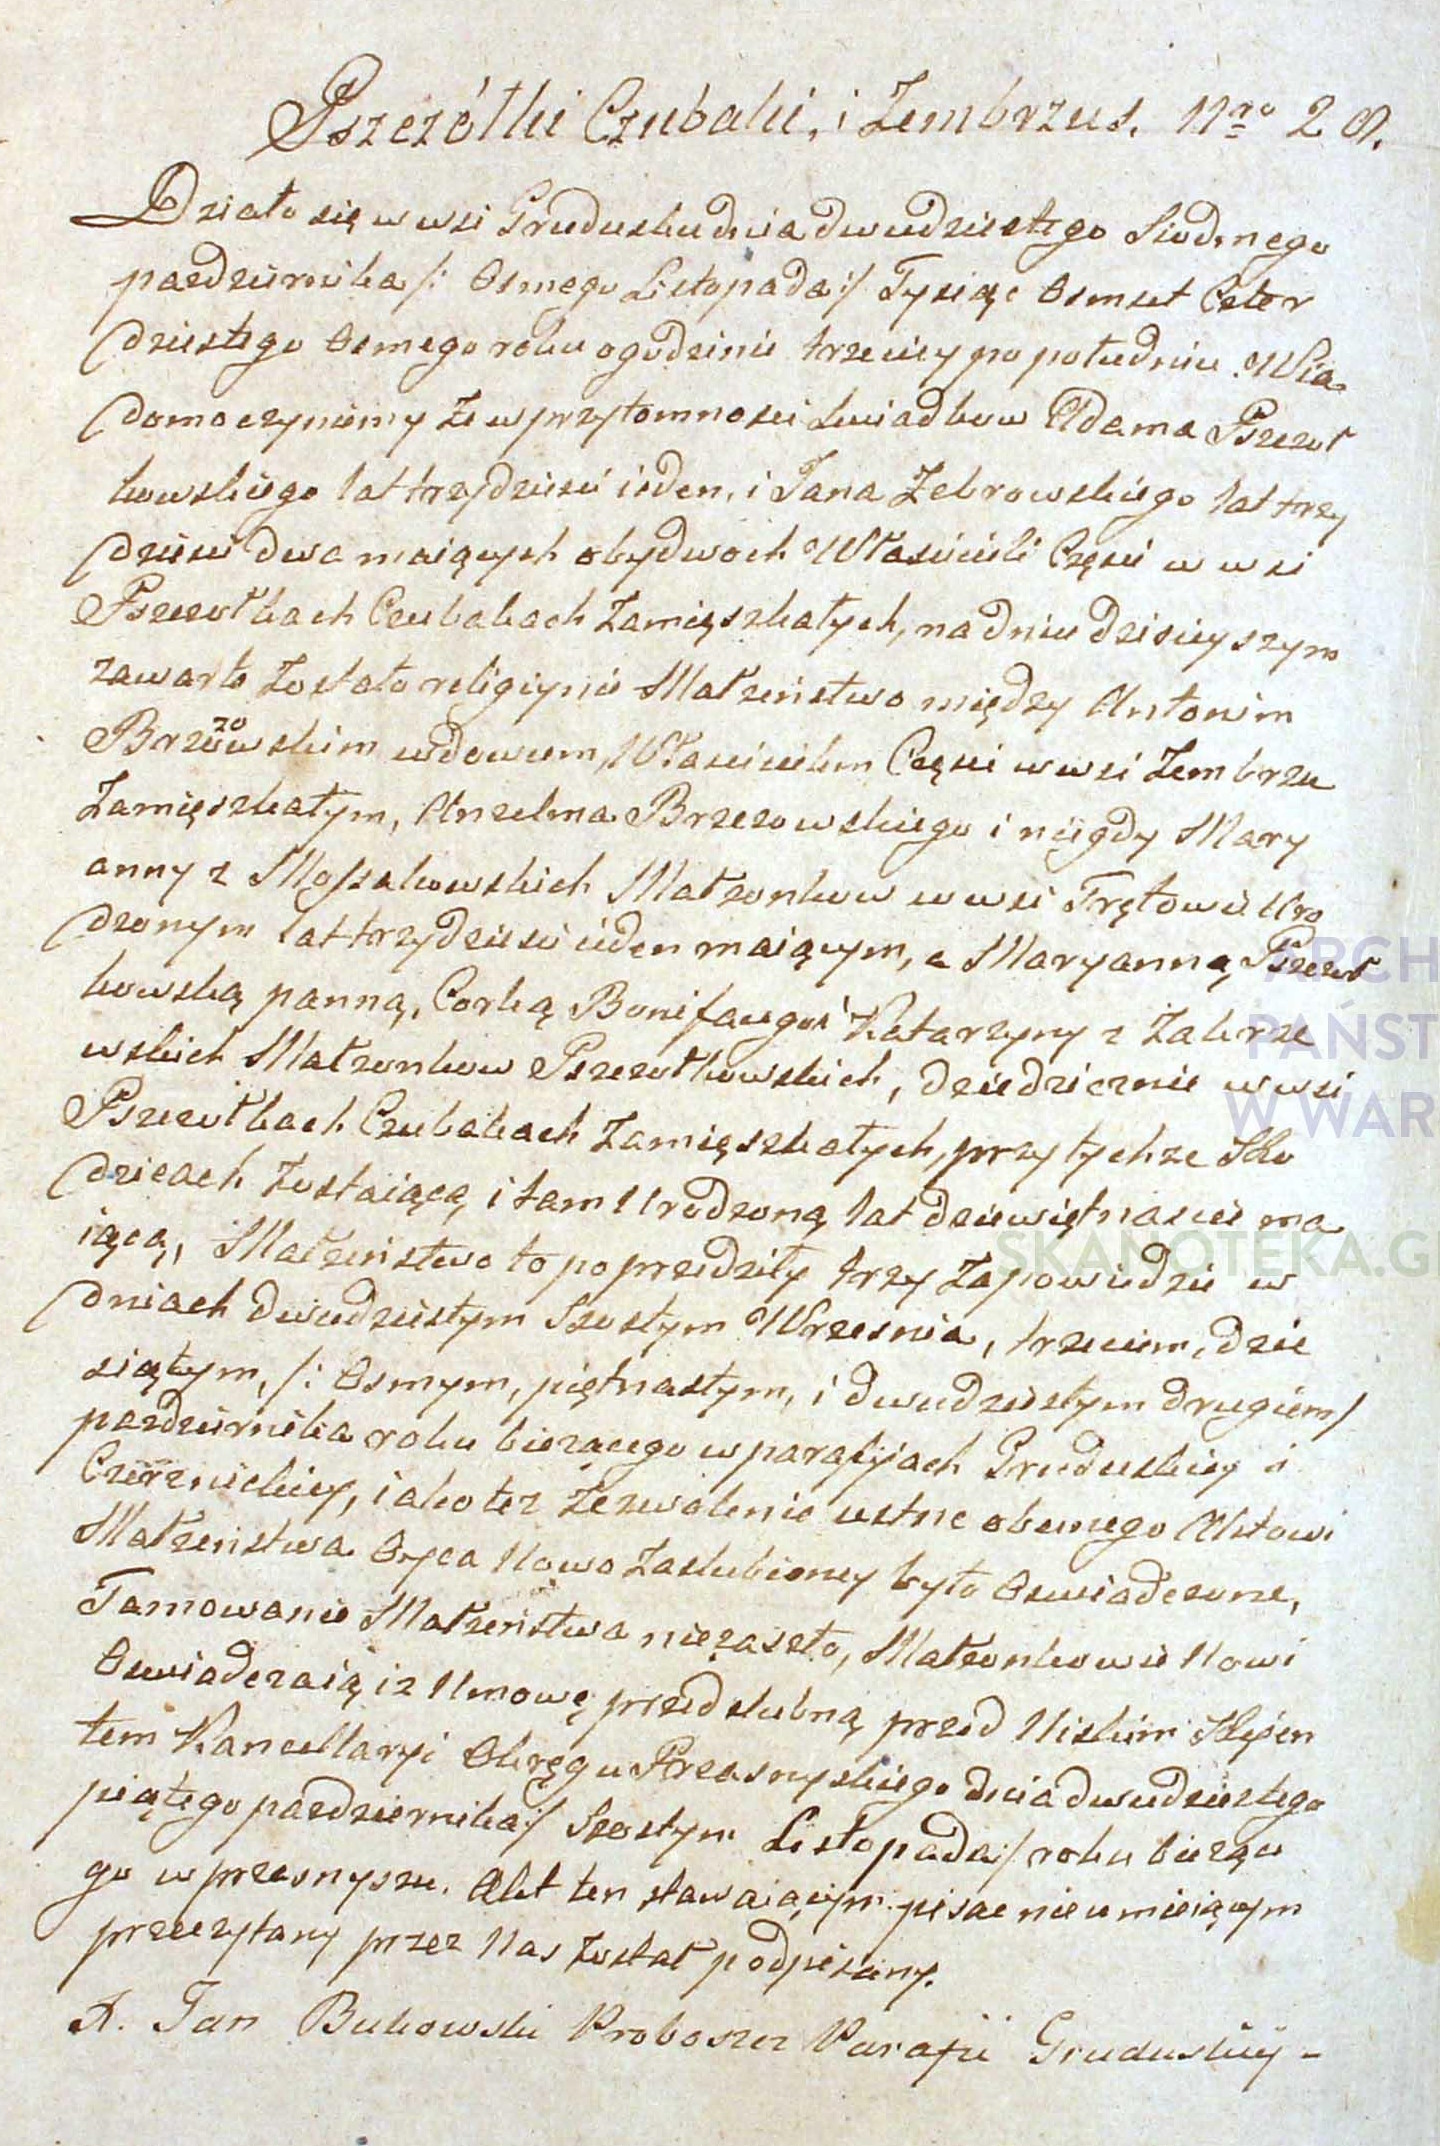 Pszczółki Czubaki, i Zembrzus. Nro 28.
Działo się w wsi Grudusku dnia dwudziestego Siodmego
pazdziernika /: Osmego Listopada:/ Tysiąc Osmset Czter
dziestego Osmego roku o godzinie trzeciey po południu. Wia
domo czyniemy że w przytomnosci swiadkow Adama Pszczoł
kowskiego lat trzydziesci ieden, i Jana Zebrowskiego lat trzy
dziesci dwa maiących obydwoch Włascicieli Częsci w wsi
Pszczołkach Czubakach Zamięszkałych, na dniu dzisieyszym
zawarte Zostało religiynie Małżeństwo między Antonim
Brzozowskim wdowcem, Włascicielem Częsci w wsi Zembrzu
Zamięszkałym, Anzelma Brzozowskiego i niegdy Mary
anny z Mossakowskich Małzonkow w wsi Trętowie Uro
dzonym lat trzydziesci ieden maiącym, a Maryanną Pszczoł
kowską panną, Corką Bonifacego i Katarzyny z Zakrze
wskich Małzonkow Pszczołkowskich, dziedzicznie w wsi
Pszczołkach Czubakach Zamięszkałych, przy tychże Ro
dzicach Zostaiącą, i tam Urodzoną lat dziewiętnascie ma
iącą, Małżeństwo to poprzedziły trzy Zapowiedzie w
dniach dwudziestym Szostym Wrzesnia, trzecim, dzie
siątym, /: Osmym, piętnastym, i dwudziestym drugiem/
pazdziernika roku bieżącego w parafijach Gruduskiey i
Czernickiey, iako też Zezwolenie ustne obecnego Aktowi
Małżeństwa Oyca Nowo Zaslubioney było Oswiadczone,
Tamowanie Małżeństwa niezaszło, Małzonkowie Nowi
Oswiadczaią iz Umowę przedslubną przed Niskim Rejen
tem Kancellaryi Okręgu Przasnyskiego dnia dwudziestego
piątego pazdziernika:/ Szostym Listopada:/ roku bieżące
go w przasnyszu. Akt ten stawaiącym pisac nieumieiącym
przeczytany przez Nas Został podpisany.
X. Jan Bukowski Proboszcz Parafii Gruduskiéj -
ARCH
PAŃST
W WAR
SKANOTEKA.G